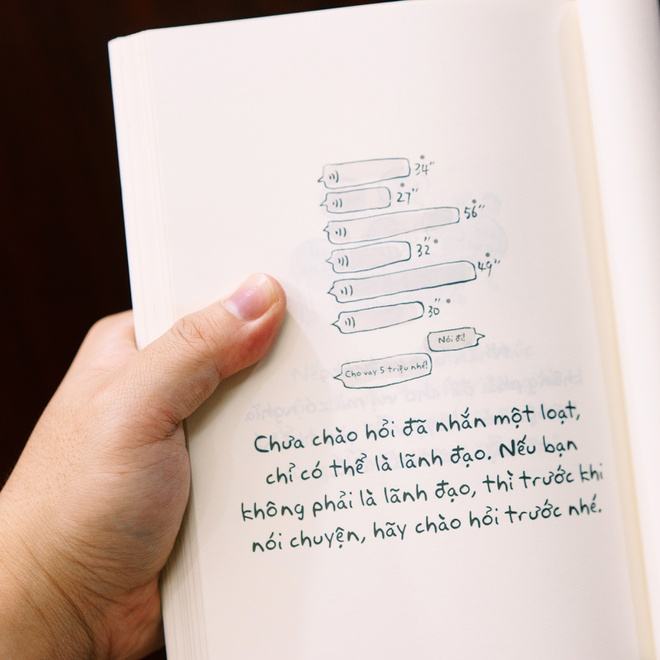 34"
27"
56"
32"
49"
30"
Nói đi!
Cho vay 5 triệu nhé!
Chưa chào hỏi đã nhắn một loạt,
chỉ có thể là lãnh đạo. Nếu bạn
không phải là lãnh đạo, thì trước khi
nói chuyện, hãy chào hỏi trước nhé.